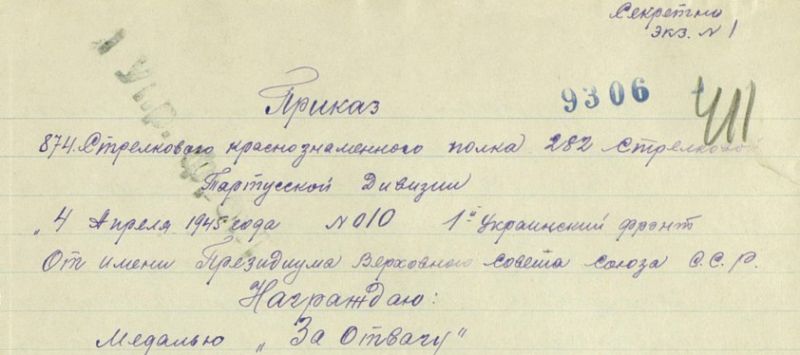 Секретно
экз. N 1
Приказ
9306
411
874. Стрелкового краснознаменного полка 282 Стрелковой
Тартусской Дивизии
"4 Апреля 1945 года N 010 1й Украинский фронт
От имени Президиума Верховного Совета Союза С.С.Р.
Награждаю:
Медалью „За Отвагу"